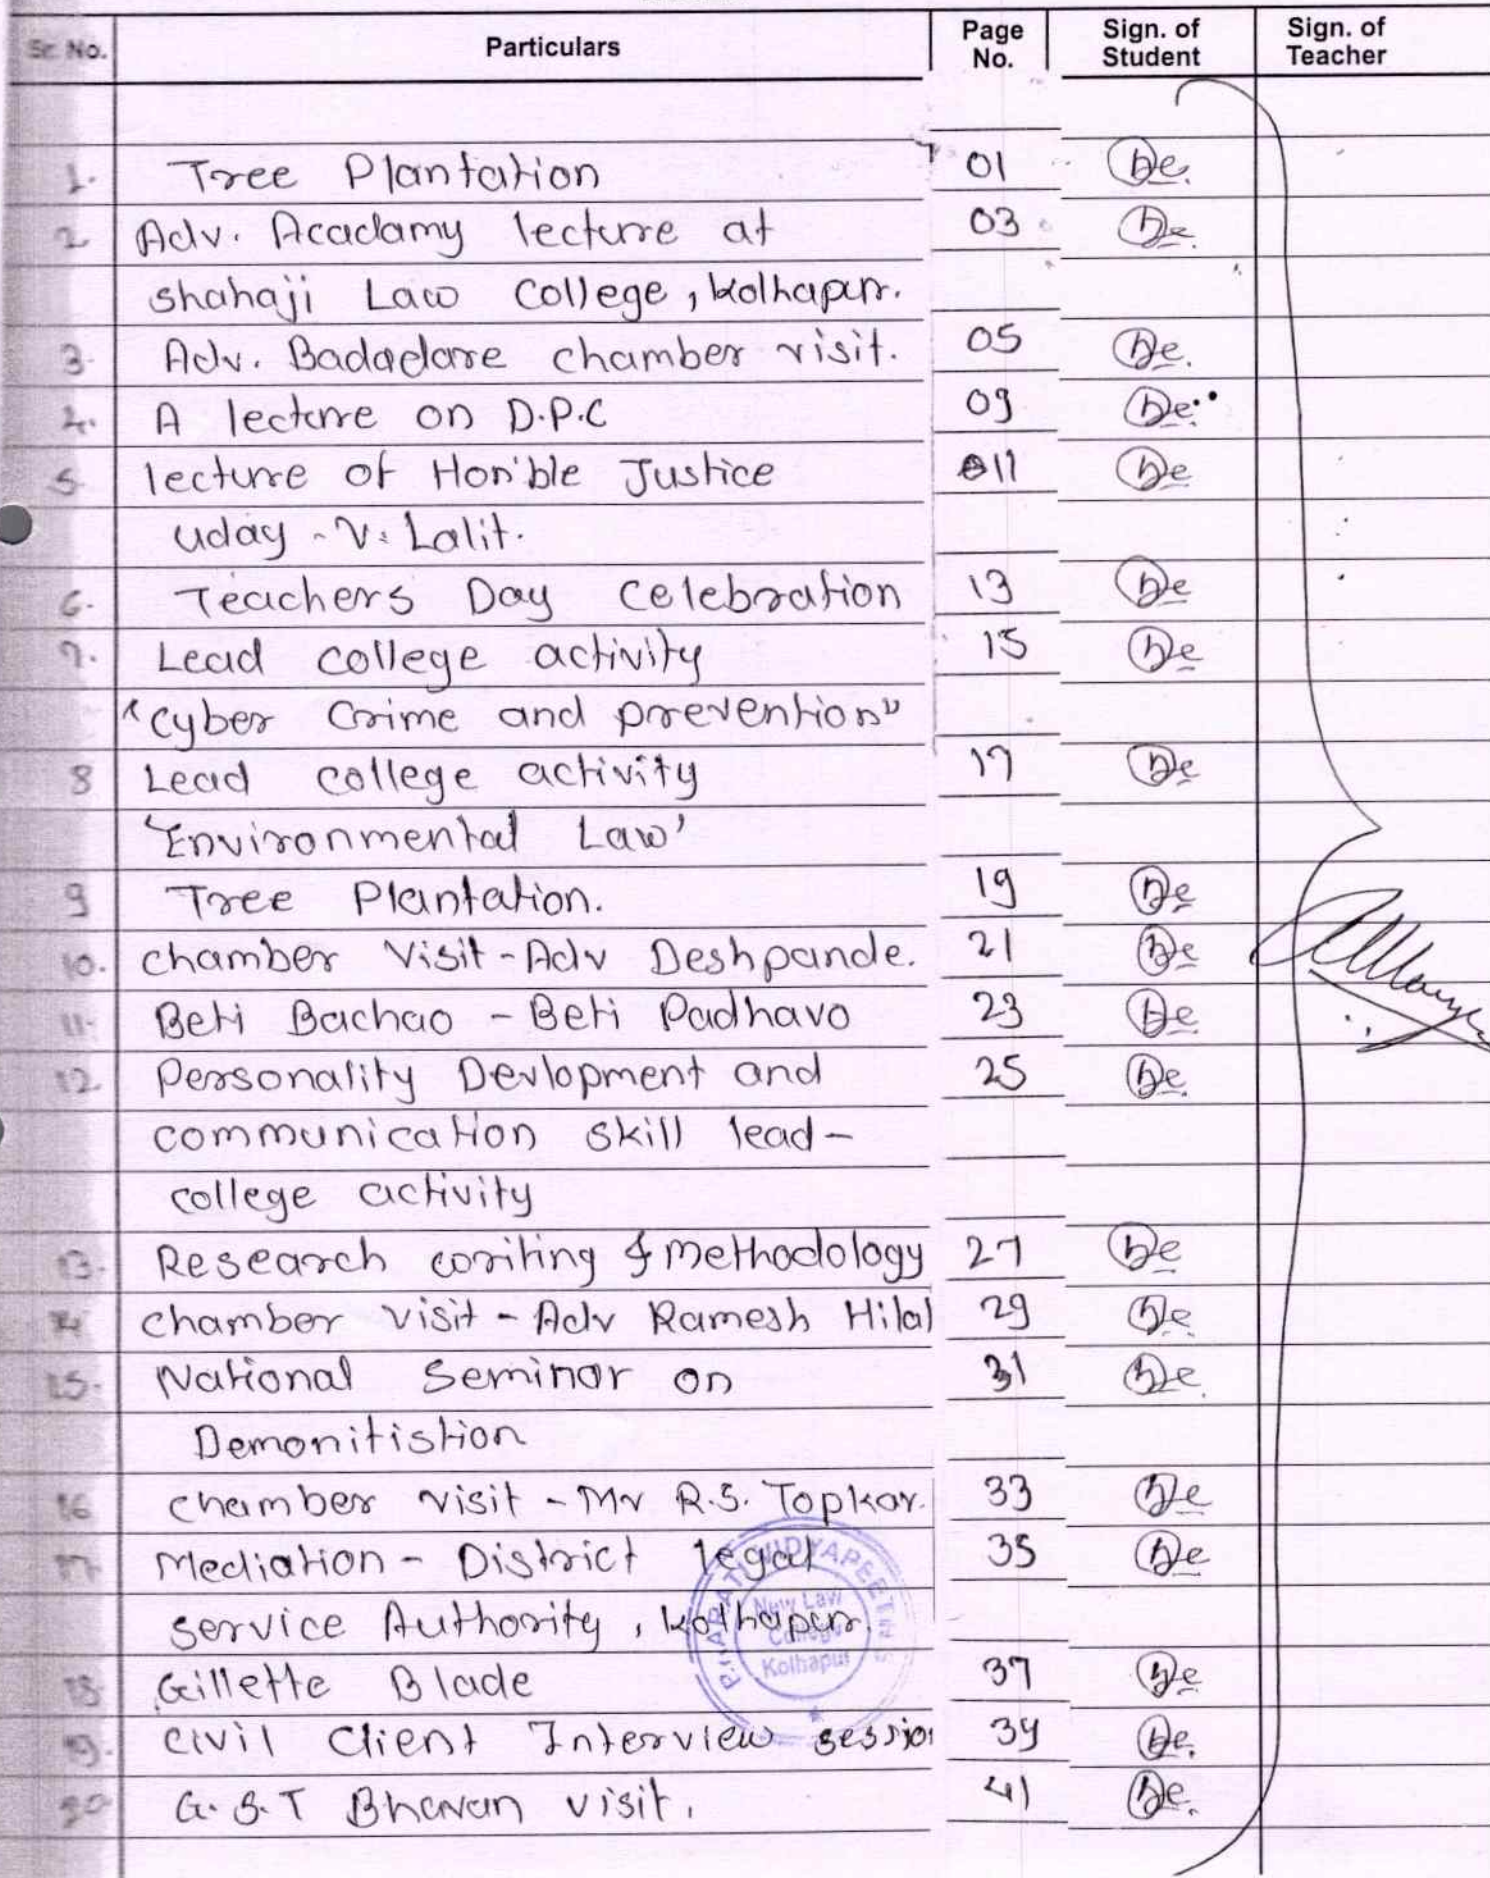 Sr. No. Particulars Page No. Sign. of Student Sign. of Teacher
1. Tree Plantation 01 De.
2 Adv. Acadamy lecture at 03 De.
shahaji Law College, kolhapur.
3. Adv. Badadare chamber visit. 05 De.
4. A lecture on D.P.C 09 De.
5 lecture of Hon'ble Justice 11 De
uday - V. Lalit.
6. Teachers Day Celebration 13 De
7. Lead college activity 15 De
"Cyber Crime and prevention"
8 Lead college activity 17 De
'Environmental Law'
9 Tree Plantation. 19 De
10. chamber Visit - Adv Deshpande. 21 De
11. Beti Bachao - Beti Padhavo 23 De
12. Personality Devlopment and 25 De
communication skill lead-
college activity
13. Research writing & methodology 27 De
14 chamber visit - Adv Ramesh Hilal 29 De
15. National Seminar on 31 De.
Demonitistion
16 chamber visit - Mr R.S. Topkar. 33 De
17. Mediation - District legal 35 De
service Authority, kolhapur.
18. Gillette Blade 37 De
19. civil Client Interview session 39 De.
20 G.S.T Bhavan visit. 41 De.
BHARATI VIDYAPEETH'S
New Law
College
Kolhapur